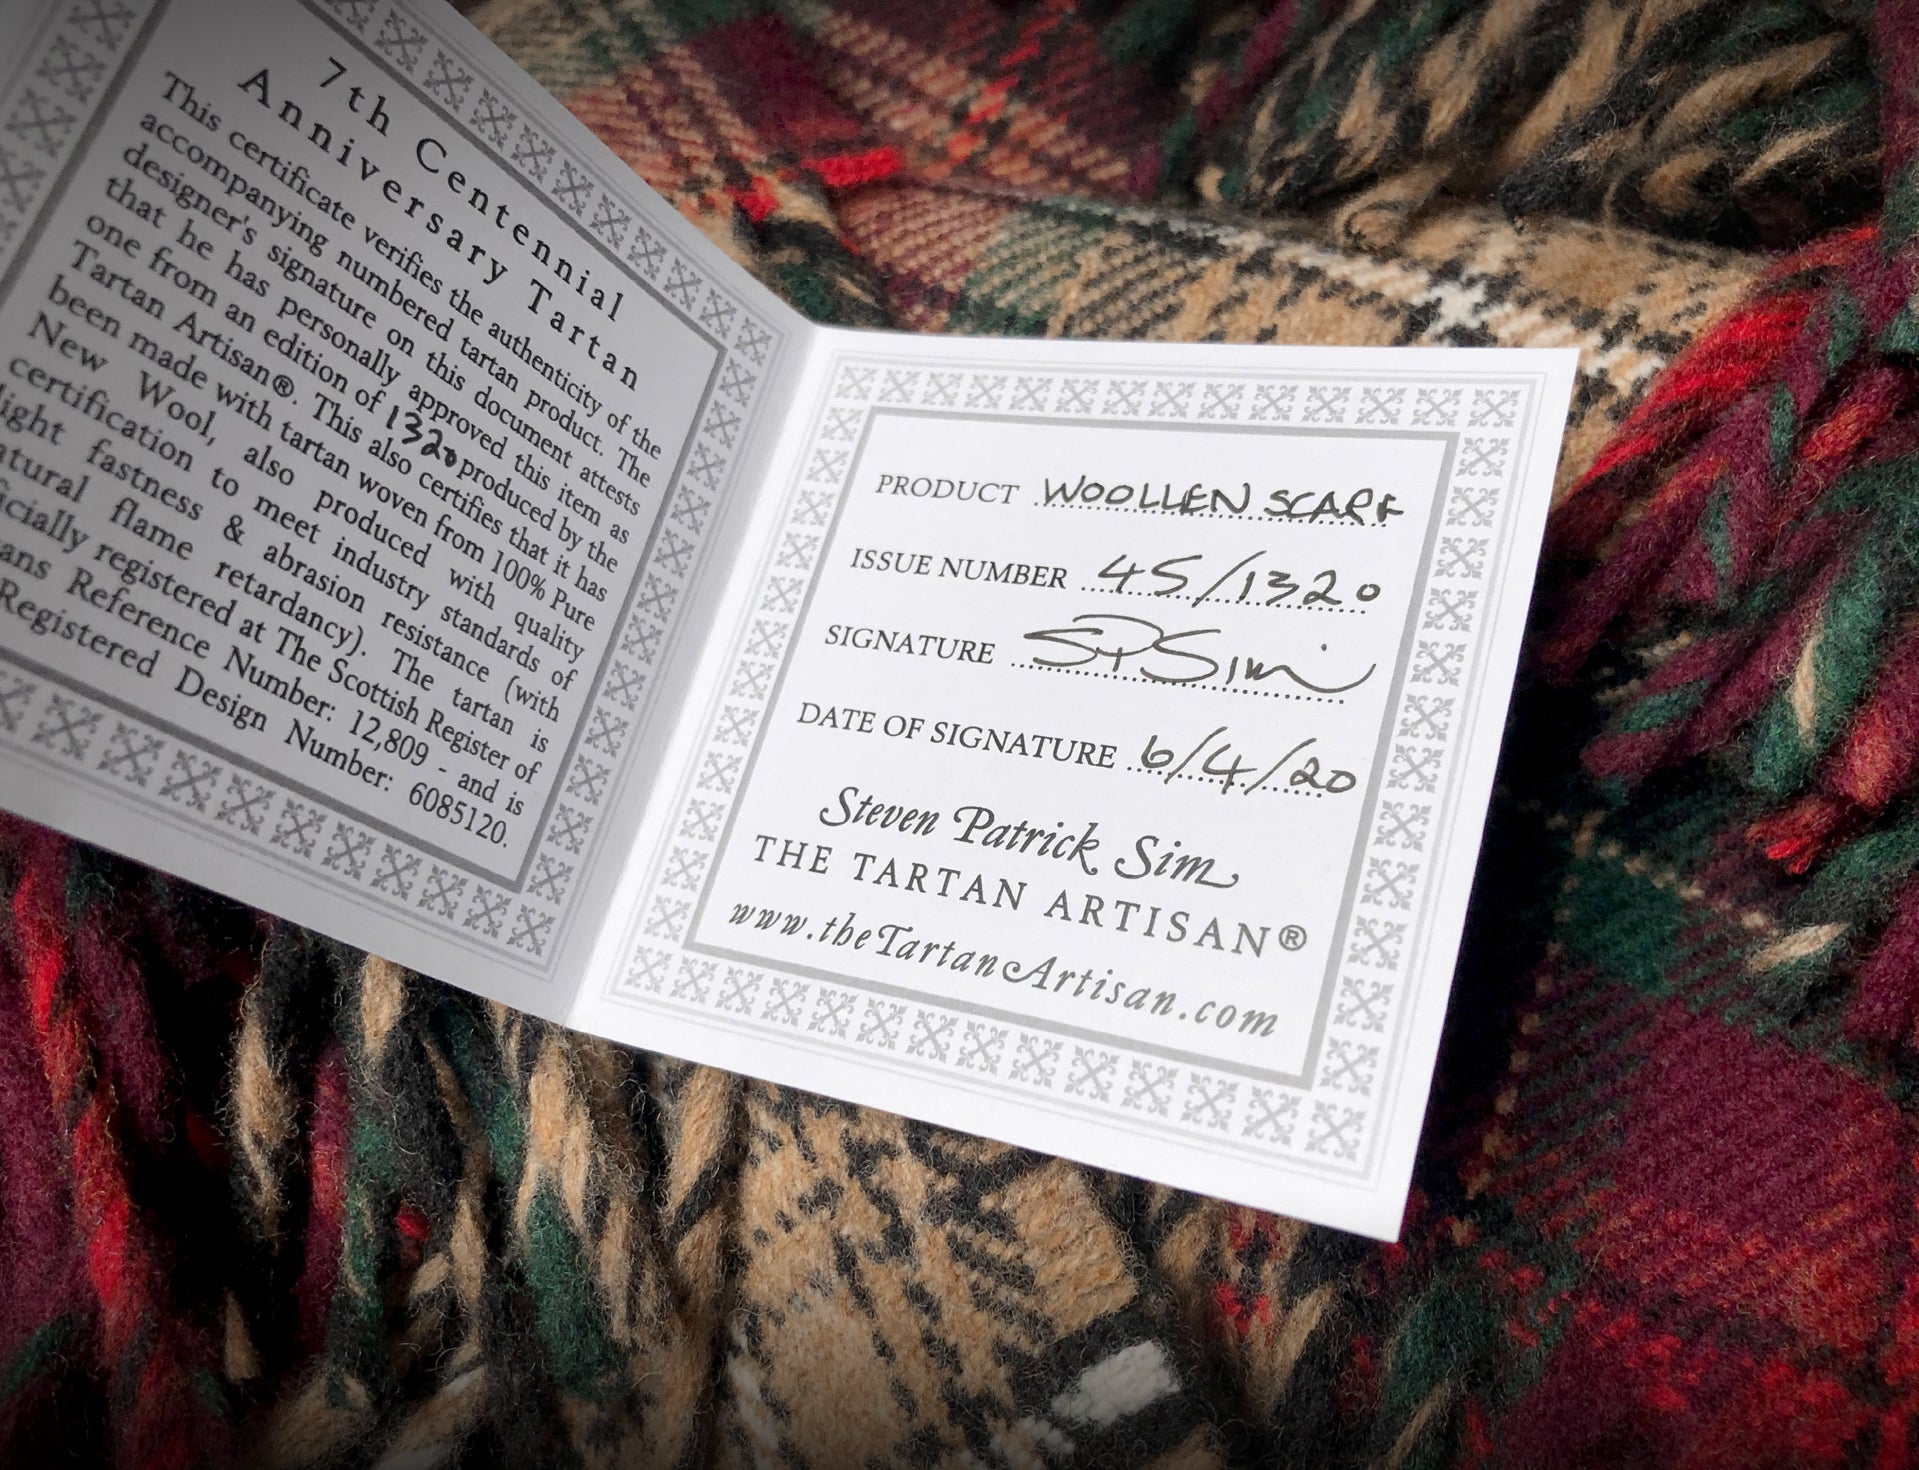 7th Centennial
Anniversary Tartan
This certificate verifies the authenticity of the
accompanying numbered tartan product. The
designer's signature on this document attests
that he has personally approved this item as
one from an edition of 1320 produced by the
Tartan Artisan®. This also certifies that it has
been made with tartan woven from 100% Pure
New Wool, also produced with quality
certification to meet industry standards of
light fastness & abrasion resistance (with
flame retardancy). The tartan is
registered at The Scottish Register of
Reference Number: 12,809 - and is
Registered Design Number: 6085120.
PRODUCT WOOLLEN SCARF
ISSUE NUMBER 45/1320
SIGNATURE SPSim
DATE OF SIGNATURE 6/4/20
Steven Patrick Sim
THE TARTAN ARTISAN®
www.theTartanArtisan.com